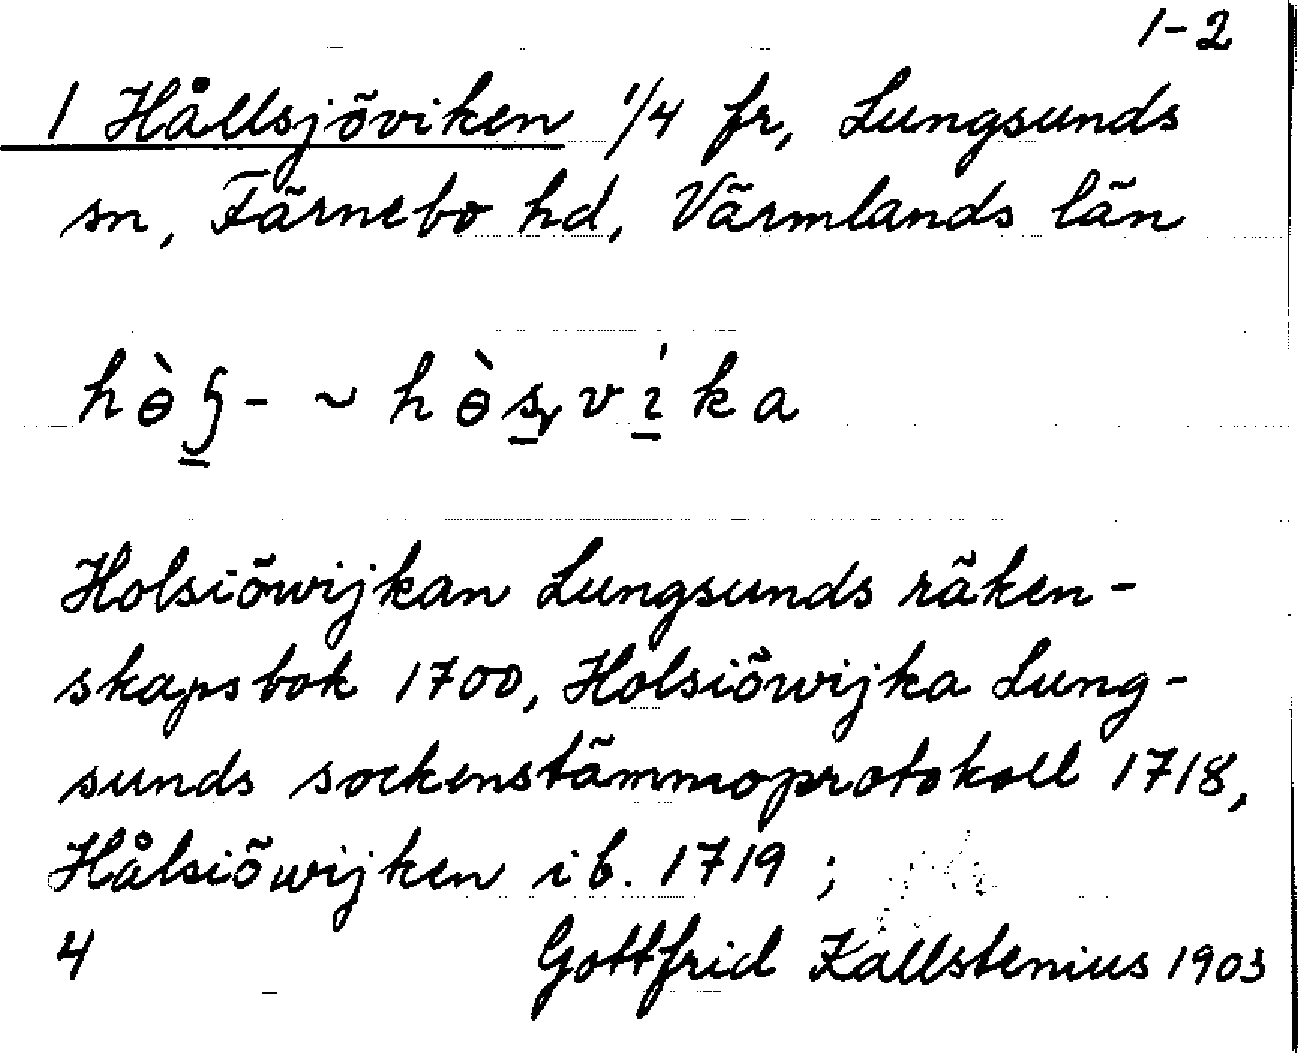 1-2
1 Hållsjöviken 1/4 fr, Lungsunds
sn, Färnebo hd, Värmlands län
Holsiöwijkan Lungsunds räken-
skapsbok 1700, Holsiöwijka Lung-
sunds sockenstämmoprotokoll 1718,
Hålsiöwijken ib. 1719 ;
4 Gottfrid Kallstenius 1903